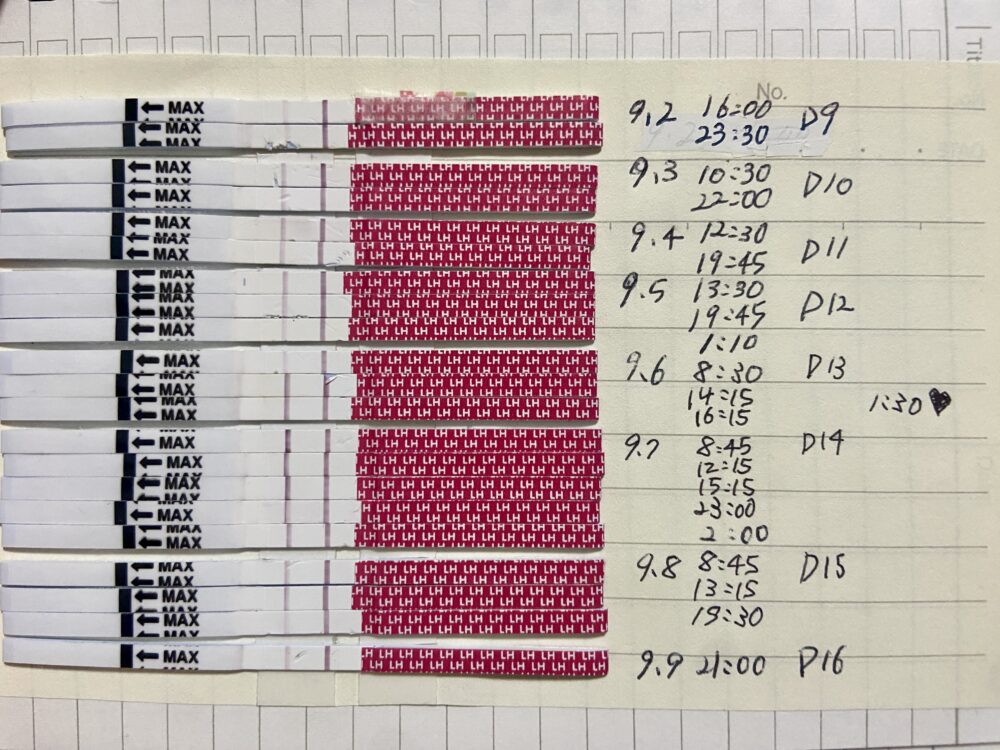 Tit
No.
MAX 9.2 16:00 D9
MAX 23:30
MAX 9.3 10:30 D10
MAX 22:00
MAX 9.4 12:30 D11
MAX 19:45
MAX 9.5 13:30 D12
MAX 19:45
MAX 1:10
MAX 9.6 8:30 D13
MAX 14:15 1:30 ♥
MAX 16:15
MAX 9.7 8:45 D14
MAX 12:15
MAX 15:15
MAX 23:00
MAX 2:00
MAX 9.8 8:45 D15
MAX 13:15
MAX 19:30
MAX 9.9 21:00 D16
LH LH LH LH LH LH LH LH LH LH